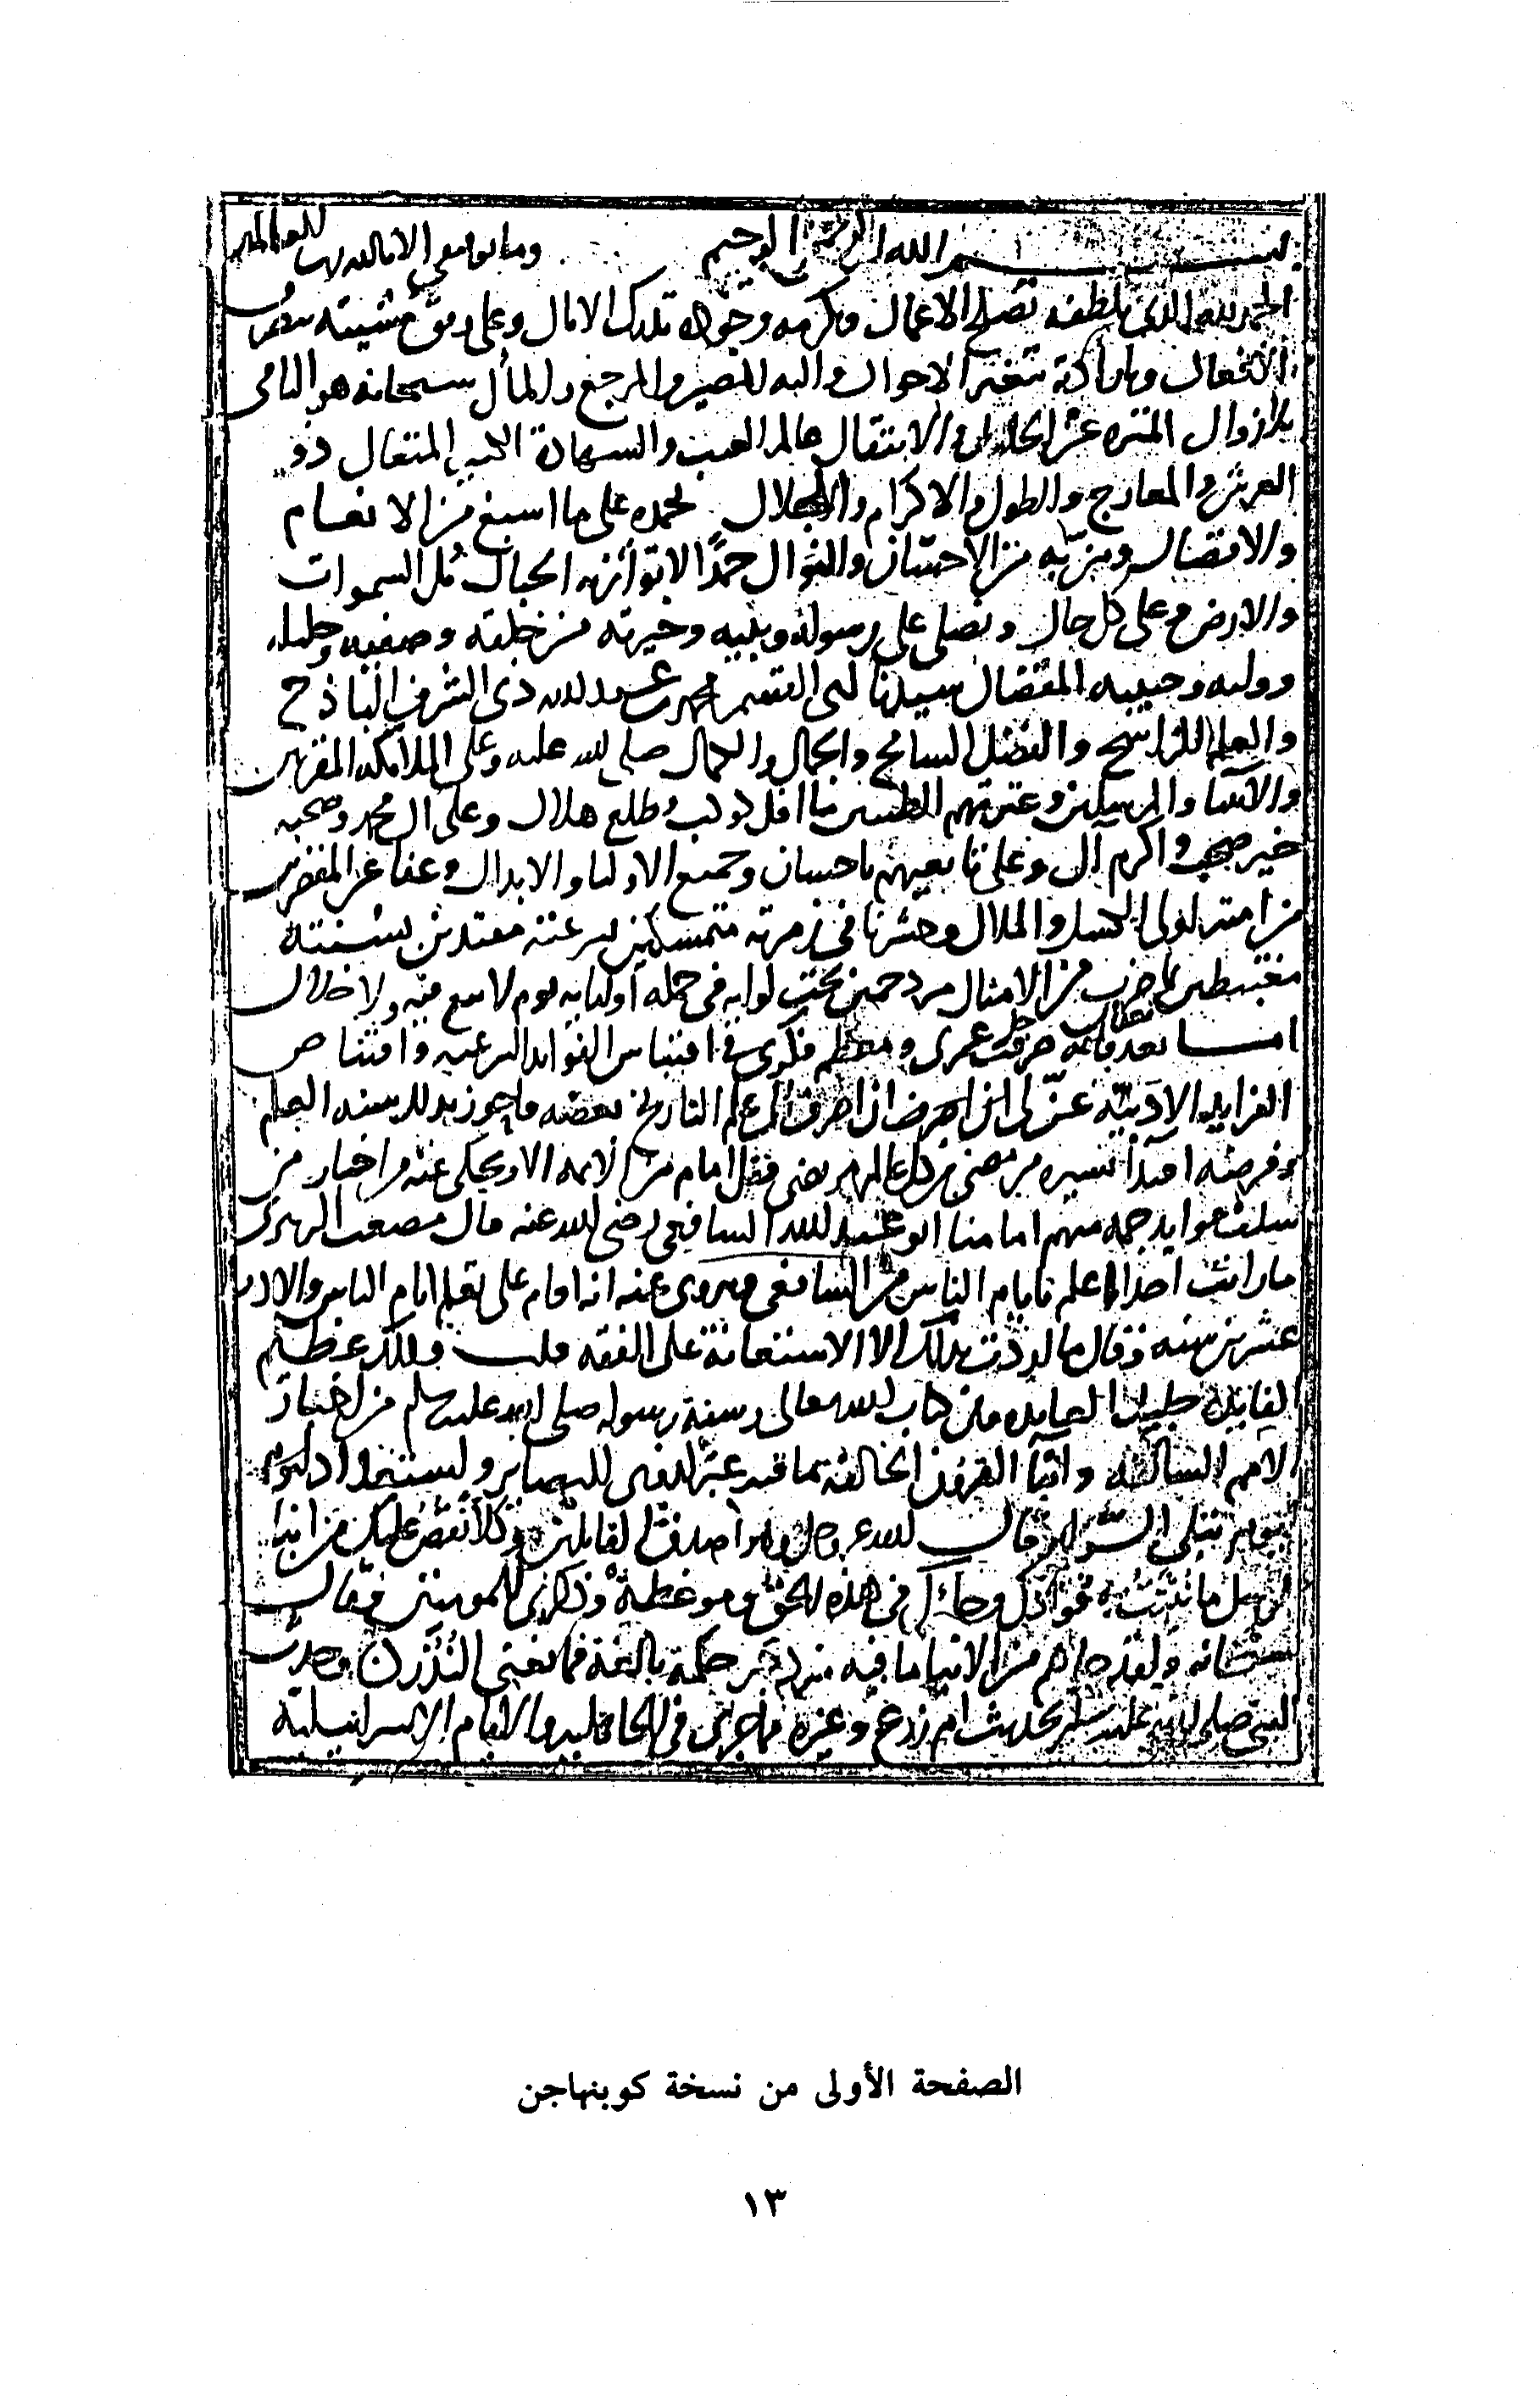 بسم الله الرحمن الرحيم وما توفيقي الا بالله
الحمد لله الذي بلطفه تصلح الاعمال وبكرمه وجوده تدرك الامال وعلى وفق مشيته
الافعال وبارادته تتغير الاحوال واليه المصير والمرجع والمأل سبحانه هو الباقي
بلا زوال المنزه عن الحلول والانتقال عالم الغيب والشهادة الكبير المتعال ذو
العرش والمعارج والطول والاكرام والاجلال نحمده على ما اسبغ من الانعام
والافضال ومن به من الاحسان والنوال حمدًا لا توازنه الجبال مل السموات
والارض وعلى كل حال ونصلي على رسوله ونبيه وخيرته من خلقه وصفيه وخليله
ووليه وحبيبه المفضال سيدنا ابي القسم محمد بن عبد الله ذي الشرف الباذخ
والعلم الراسخ والفضل الشامخ والجمال والكمال صلى الله عليه وعلى الملايكة المقربين
والانبيا والمرسلين وعترتهم الطيبين ما افل كوكب وطلع هلال وعلى ال محمد وصحبه
خير صحب واكرم آل وعلى تابعيهم باحسان وجميع الاوليا والابدال وعفا عن المقصرين
من امته اولي الكسل والملال وحشرنا في زمرته متمسكين بشرعته مقتدين بسنته
مغتبطين بما ضرب من الامثال مزدحمين تحت لوايه في جملة اوليايه يوم لا بيع فيه ولا خلال
اما بعد فانه صرفت جل عمري ومعظم فكري في اقتباس الفوايد الشرعيه واقتناص
الفرايد الادبيه عن لي ان اصرف الى علم التاريخ بعضه فاحوز بذلك سنه العلم
وفرضه اقتدآ بسيره من مضى من كل عالم مرتضى فقل امام من الايمه الا ويحكى عنه من اخبار من
سلف فوايد جمه منهم امامنا ابو عبد الله الشافعي رضي الله عنه قال مصعب الزبيري
ما رايت احدا اعلم بايام الناس من الشافعي ويروى عنه انه اقام على تعلم ايام الناس والادب
عشرين سنه وقال ما اردت بذلك الا الاستعانة على الفقه قلت وذلك عظيم
الفايدة جليل العايده وفي كتاب الله تعالى وسنة رسوله صلى الله عليه وسلم من اخبار
الامم السالفه وانبآ القرون الخالفه ما فيه عبر لذوي البصاير واستعداد ليوم
يوم تبلى السراير قال الله عز وجل وهو اصدق القايلين وكلا نقص عليك من انبا
الرسل ما نثبت به فوادك وجاك في هذه الحق وموعظة وذكرى للمومنين وقال
سبحانه ولقد جاهم من الانبا ما فيه مزدجر حكمة بالغة فما تغني النذر وحدث
النبي صلى الله عليه وسلم بحديث ام زرع وغيره مما جرى في الجاهليه والايام الاسرائيلية
الصفحة الأولى من نسخة كوبنهاجن
١٣